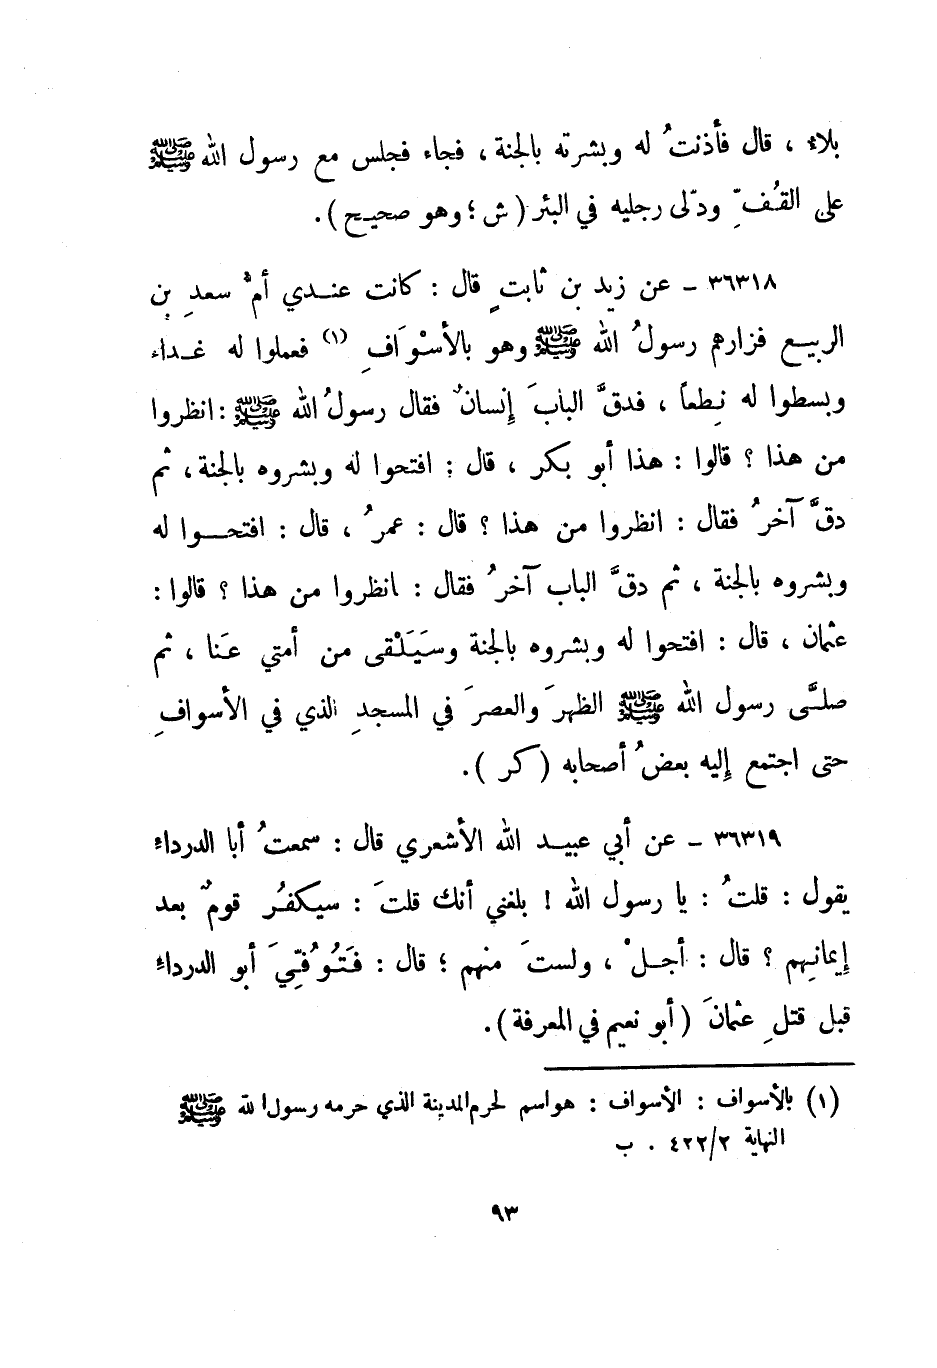 بلاء ، قال فأذنتُ له وبشرته بالجنة ، فجاء فجلس مع رسول الله ﷺ
على القُفِّ ودلّى رجليه في البئر ( ش ؛ وهو صحيح ) .
٣٦٣١٨ ـ عن زيد بن ثابتٍ قال : كانت عندي أمُّ سعدِ بنِ
الربيع فزارهم رسولُ الله ﷺ وهو بالأسْوَافِ (١) فعملوا له غداء
وبسطوا له نِطعاً ، فدقَّ البابَ إنسانٌ فقال رسولُ الله ﷺ : انظروا
من هذا ؟ قالوا : هذا أبو بكر ، قال : افتحوا له وبشروه بالجنة ، ثم
دقَّ آخرُ فقال : انظروا من هذا ؟ قال : عمرُ ، قال : افتحوا له
وبشروه بالجنة ، ثم دقَّ الباب آخرُ فقال : انظروا من هذا ؟ قالوا :
عثمان ، قال : افتحوا له وبشروه بالجنة وسيَلْقى من أمتي عنَا ، ثم
صلَّى رسول الله ﷺ الظهرَ والعصرَ في المسجدِ الذي في الأسوافِ
حتى اجتمع إليه بعضُ أصحابه ( كر ) .
٣٦٣١٩ ـ عن أبي عبيد الله الأشعري قال : سمعتُ أبا الدرداء
يقول : قلتُ : يا رسول الله ! بلغني أنك قلتَ : سيكفُر قومٌ بعد
إيمانِهم ؟ قال : أجلْ ، ولستَ منهم ؛ قال : فتُوُفِّيَ أبو الدرداءِ
قبل قتلِ عثمانَ ( أبو نعيم في المعرفة ) .
(١) بالأسواف : الأسواف : هو اسم لحرم المدينة الذي حرمه رسول الله ﷺ
النهاية ٤٢٢/٢ . ب
٩٣